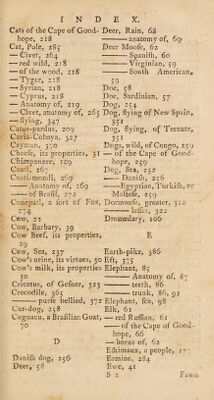 INDEX.
Cats of the Cape of Good-
hope, 218
Cat, Pole, 285
— Civet, 264
— red wild, 218
— of the wood, 218
— Tyger, 218
— Syrian, 218
— Cyprus, 218
— Anatomy of, 219
— Civet, anatomy of, 265
— flying, 347
Catus-pardus, 209
Cavia-Cobaya, 327
Cayman, 370
Cheese, its properties, 31
Chimpanzee, 129
Coati, 267
Coati-mondi, 269
— Anatomy of, 269
— of Brasil, 272
Conepatl, a sort of Fox,
274
Cow, 22
Cow, Barbary, 39
Cow Beef, its properties,
29
Cow, Sea, 237
Cow's urine, its virtues, 30
Cow's milk, its properties
30
Cricetus, of Gesner, 323
Crocodile, 365
— purse bellied, 372
Cur-dog, 258
Cuguacu, a Brasilian Goat,
70
D
Danish dog, 256
Deer, 58
Deer, Rain, 68
— anatomy of, 69
Deer Moose, 62
— Spanish, 60
— Virginian, 59
— South American,
59
Doe, 58
Doe, Sardinian, 57
Dog, 254
Dog, flying of New Spain,
351
Dog, flying, of Ternate,
351
Dogs, wild, of Congo, 259
— of the Cape of Good-
hope, 259
Dog, Sea, 232
— Danish, 256
— Egyptian, Turkish, or
Maltese, 259
Dormouse, greater,
— lesser, 322
Dromedary, 106
E
Earth-pike, 386
Eft, 375
Elephant, 85
— Anatomy of, 87
— teeth, 86
— trunk, 86,
Elephant, sea, 98
Elk, 61
— red Russian, 61
— of the Cape of Good-
hope, 66
— horns of, 62
Eskimaux, a people,
Ermine, 284
Ewe, 41
S 2
Fawn